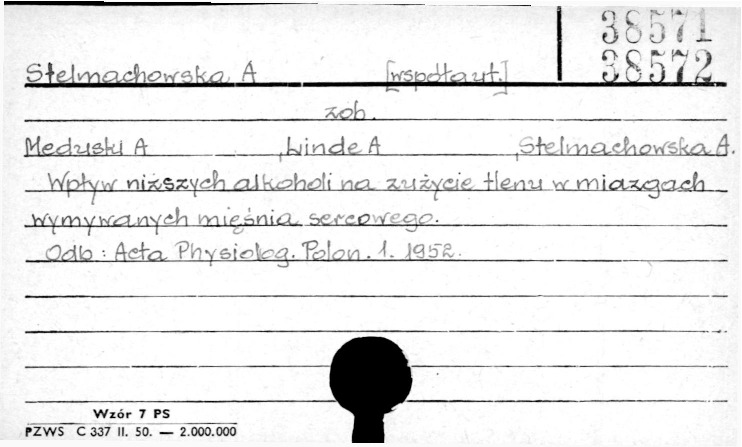 38571
Stelmachowska A [współaut.] 38572
zob.
Meduski A , Linde A , Stelmachowska A.
Wpływ niższych alkoholi na zużycie tlenu w miazgach
wymywanych mięśnia sercowego.
Odb: Acta Physiolog. Polon. 1. 1952.
Wzór 7 PS
PZWS C 337 II. 50. — 2.000.000